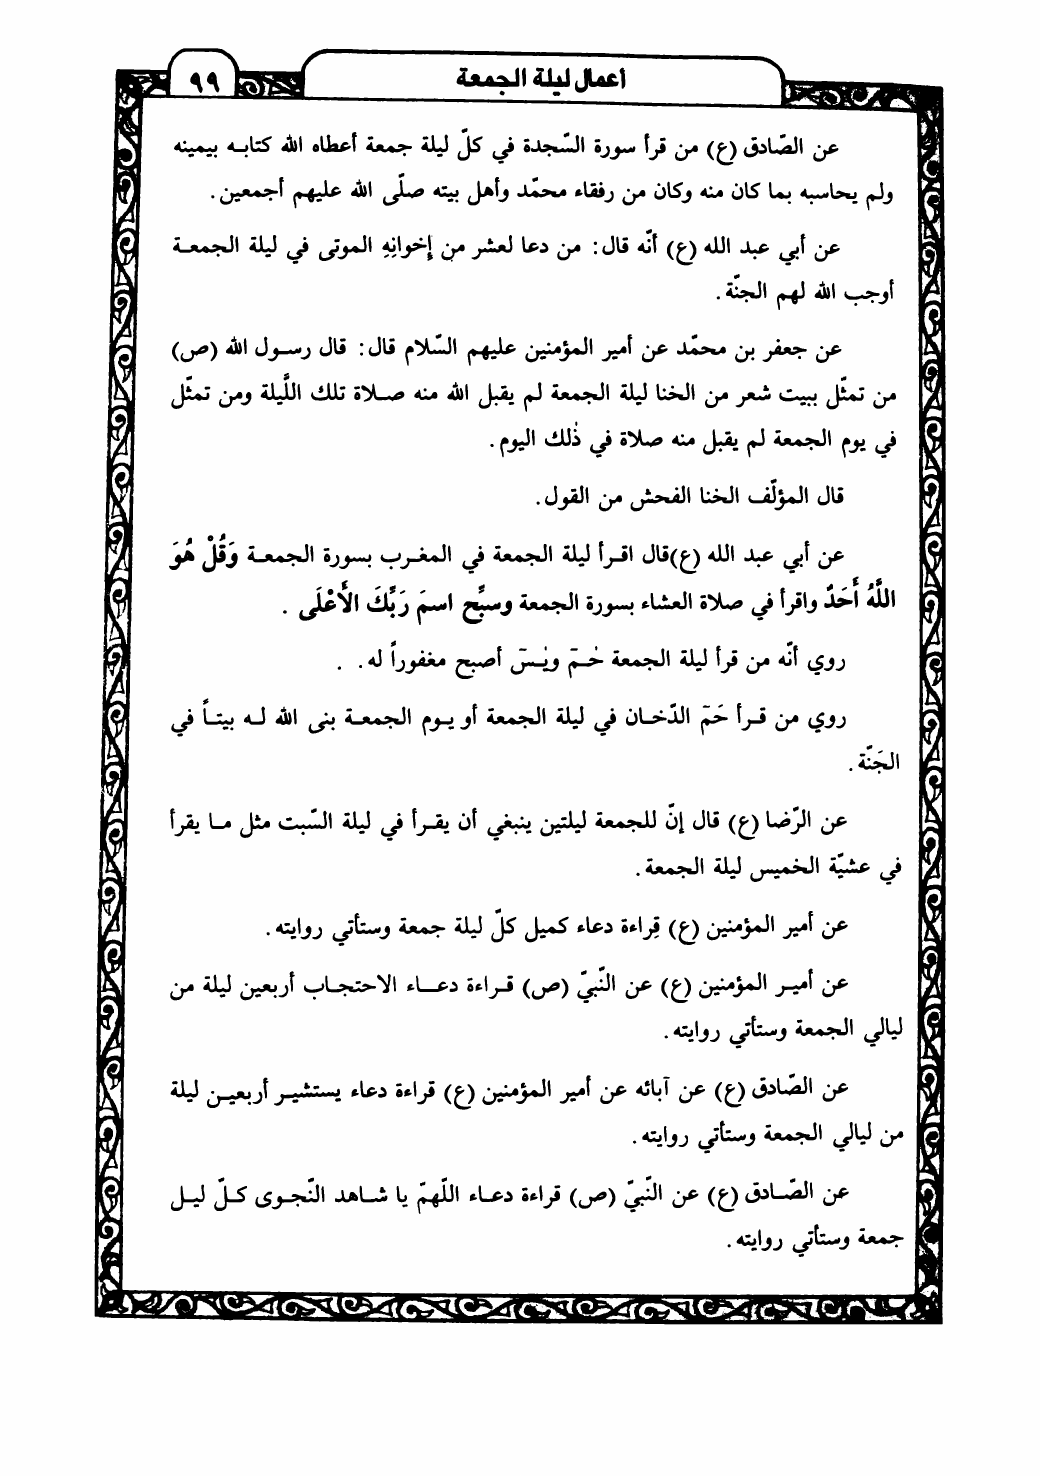 أعمال ليلة الجمعة
٩٩
عن الصّادق (ع) من قرأ سورة السّجدة في كلّ ليلة جمعة أعطاه الله كتابه بيمينه
ولم يحاسبه بما كان منه وكان من رفقاء محمّد وأهل بيته صلّى الله عليهم أجمعين.
عن أبي عبد الله (ع) أنّه قال: من دعا لعشر من إخوانِهِ الموتى في ليلة الجمعة
أوجب الله لهم الجنّة.
عن جعفر بن محمّد عن أمير المؤمنين عليهم السّلام قال: قال رسول الله (ص)
من تمثّل ببيت شعر من الخنا ليلة الجمعة لم يقبل الله منه صلاة تلك اللَّيلة ومن تمثّل
في يوم الجمعة لم يقبل منه صلاة في ذٰلك اليوم.
قال المؤلّف الخنا الفحش من القول.
عن أبي عبد الله (ع)قال اقرأ ليلة الجمعة في المغرب بسورة الجمعة وَقُلْ هُوَ
اللَّهُ أَحَدٌ واقرأ في صلاة العشاء بسورة الجمعة وسبِّح اسمَ رَبِّكَ الأَعْلَى .
روي أنّه من قرأ ليلة الجمعة حٰمٓ ويٰسٓ أصبح مغفوراً له. .
روي من قرأ حَمٓ الدّخان في ليلة الجمعة أو يوم الجمعة بنى الله له بيتاً في
الجَنّة.
عن الرّضا (ع) قال إنّ للجمعة ليلتين ينبغي أن يقرأ في ليلة السّبت مثل ما يقرأ
في عشيّة الخميس ليلة الجمعة.
عن أمير المؤمنين (ع) قِراءة دعاء كميل كلّ ليلة جمعة وستأتي روايته.
عن أمير المؤمنين (ع) عن النّبيّ (ص) قراءة دعاء الاحتجاب أربعين ليلة من
ليالي الجمعة وستأتي روايته.
عن الصّادق (ع) عن آبائه عن أمير المؤمنين (ع) قراءة دعاء يستشير أربعين ليلة
من ليالي الجمعة وستأتي روايته.
عن الصّادق (ع) عن النّبيّ (ص) قراءة دعاء اللّهمّ يا شاهد النّجوى كلّ ليل
جمعة وستأتي روايته.